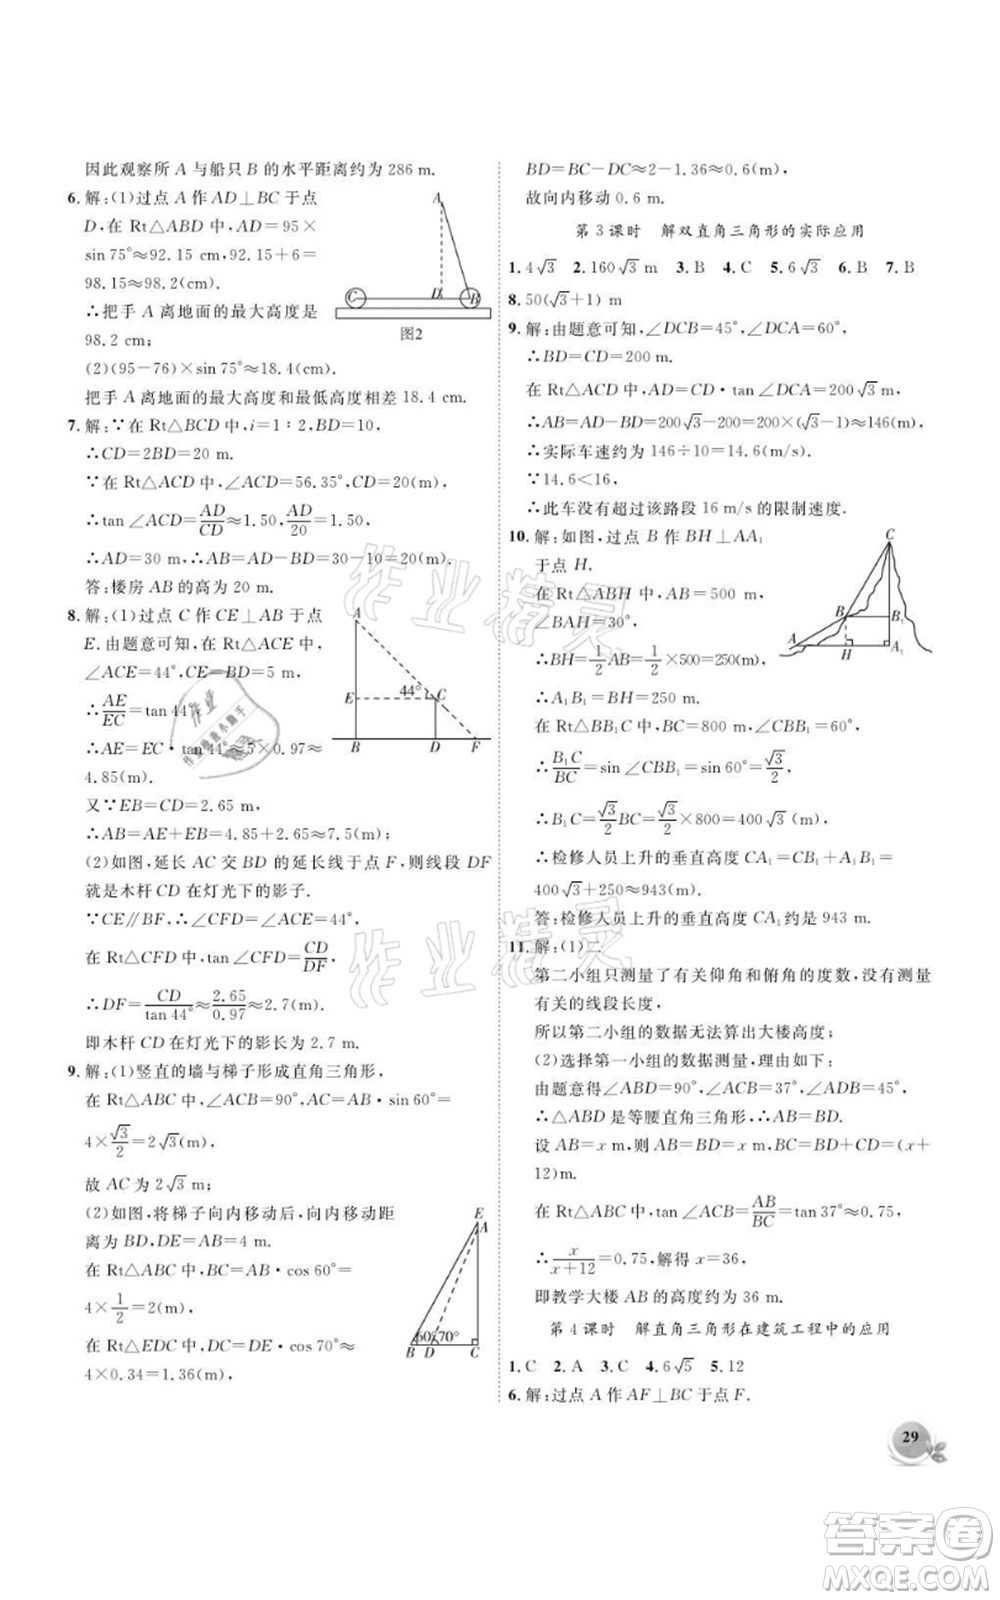 因此观察所 A 与船只 B 的水平距离约为 286 m.
6. 解:(1)过点 A 作 AD⊥BC 于点
D,在 Rt△ABD 中,AD=95×
sin 75°≈92.15(cm),92.15+6=
98.15≈98.2(cm).
∴把手 A 离地面的最大高度是
98.2 cm;
(2)(95-76)×sin 75°≈18.4(cm).
把手 A 离地面的最大高度和最低高度相差 18.4 cm.
A
C
D
B
图2
7. 解:∵在 Rt△BCD 中,i=1∶2,BD=10,
∴CD=2BD=20 m.
∵在 Rt△ACD 中,∠ACD=56.35°,CD=20(m),
∴tan∠ACD=AD/CD≈1.50,AD/20=1.50,
∴AD=30 m.∴AB=AD-BD=30-10=20(m).
答:楼房 AB 的高为 20 m.
8. 解:(1)过点 C 作 CE⊥AB 于点
E.由题意可知,在 Rt△ACE 中,
∠ACE=44°,CE=BD=5 m,
∴AE/EC=tan 44°,
∴AE=EC·tan 44°≈5×0.97≈
4.85(m).
又∵EB=CD=2.65 m,
∴AB=AE+EB=4.85+2.65≈7.5(m);
A
E
44°
C
B
D
F
(2)如图,延长 AC 交 BD 的延长线于点 F,则线段 DF
就是木杆 CD 在灯光下的影子.
∵CE∥BF,∴∠CFD=∠ACE=44°,
在 Rt△CFD 中,tan∠CFD=CD/DF,
∴DF=CD/tan 44°≈2.65/0.97≈2.7(m),
即木杆 CD 在灯光下的影长为 2.7 m.
9. 解:(1)竖直的墙与梯子形成直角三角形,
在 Rt△ABC 中,∠ACB=90°,AC=AB·sin 60°=
4×√3/2=2√3(m),
故 AC 为 2√3 m;
(2)如图,将梯子向内移动后,向内移动距
离为 BD,DE=AB=4 m.
在 Rt△ABC 中,BC=AB·cos 60°=
4×1/2=2(m),
在 Rt△EDC 中,DC=DE·cos 70°≈
4×0.34=1.36(m),
E
A
60°
70°
B
D
C
BD=BC-DC≈2-1.36≈0.6(m),
故向内移动 0.6 m.
第 3 课时 解双直角三角形的实际应用
1. 4√3 2. 160√3 m 3. B 4. C 5. 6√3 6. B 7. B
8. 50(√3+1) m
9. 解:由题意可知,∠DCB=45°,∠DCA=60°,
∴BD=CD=200 m.
在 Rt△ACD 中,AD=CD·tan∠DCA=200√3 m.
∴AB=AD-BD=200√3-200≈146(m).
∴实际车速约为 146÷10=14.6(m/s).
∵14.6<16,
∴此车没有超过该路段 16 m/s 的限制速度.
10. 解:如图,过点 B 作 BH⊥AA₁
于点 H.
在 Rt△ABH 中,AB=500 m,
∠BAH=30°,
∴BH=1/2AB=1/2×500=250(m),
∴A₁B₁=BH=250 m.
C
B
B₁
A
H
A₁
在 Rt△BB₁C 中,BC=800 m,∠CBB₁=60°,
∴B₁C/BC=sin∠CBB₁=sin 60°=√3/2,
∴B₁C=√3/2BC=√3/2×800=400√3(m),
∴检修人员上升的垂直高度 CA₁=CB₁+A₁B₁=
400√3+250≈943(m).
答:检修人员上升的垂直高度 CA₁约是 943 m.
11. 解:(1)二
第二小组只测量了有关仰角和俯角的度数,没有测量
有关的线段长度,
所以第二小组的数据无法算出大楼高度;
(2)选择第一小组的数据测量,理由如下:
由题意得∠ABD=90°,∠ADB=45°,
∴△ABD 是等腰直角三角形,∴AB=BD.
设 AB=x m,则 AB=BD=x m,BC=BD+CD=(x+
12)m.
在 Rt△ABC 中,tan∠ACB=AB/BC=tan 37°≈0.75,
∴x/(x+12)=0.75,解得 x=36,
即教学大楼 AB 的高度约为 36 m.
第 4 课时 解直角三角形在建筑工程中的应用
1. C 2. A 3. C 4. 6√5 5. 12
6. 解:过点 A 作 AF⊥BC 于点 F.
29
作业精灵
作业精灵
作业
作业检查小助手
答案卷
MXQE.COM